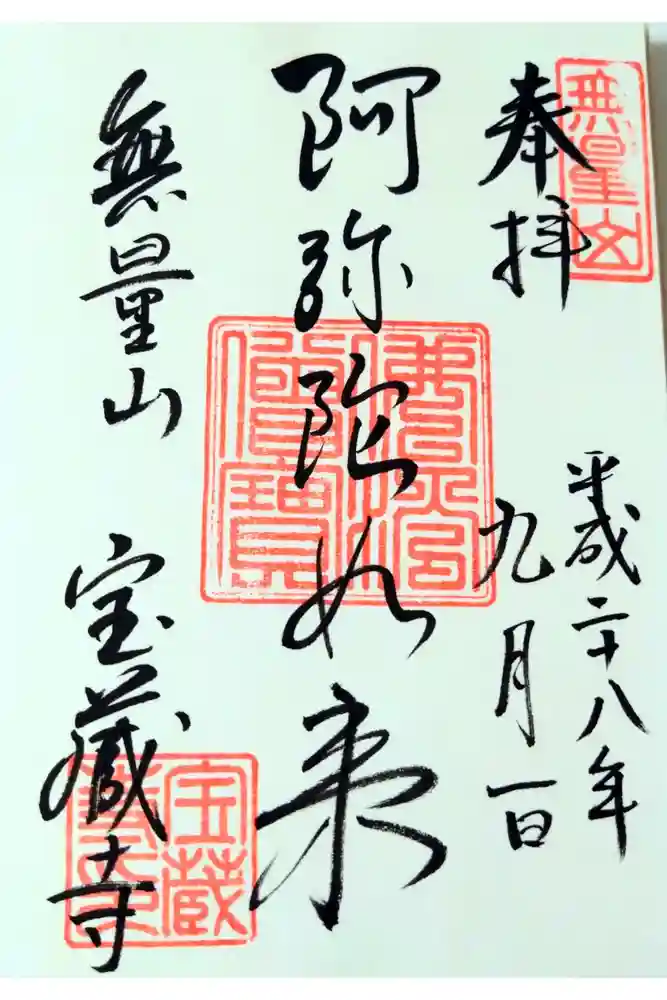 奉拝
平成二十八年
九月一日
阿弥陀如来
無量山 宝蔵寺
無量山
佛法僧寶
宝蔵